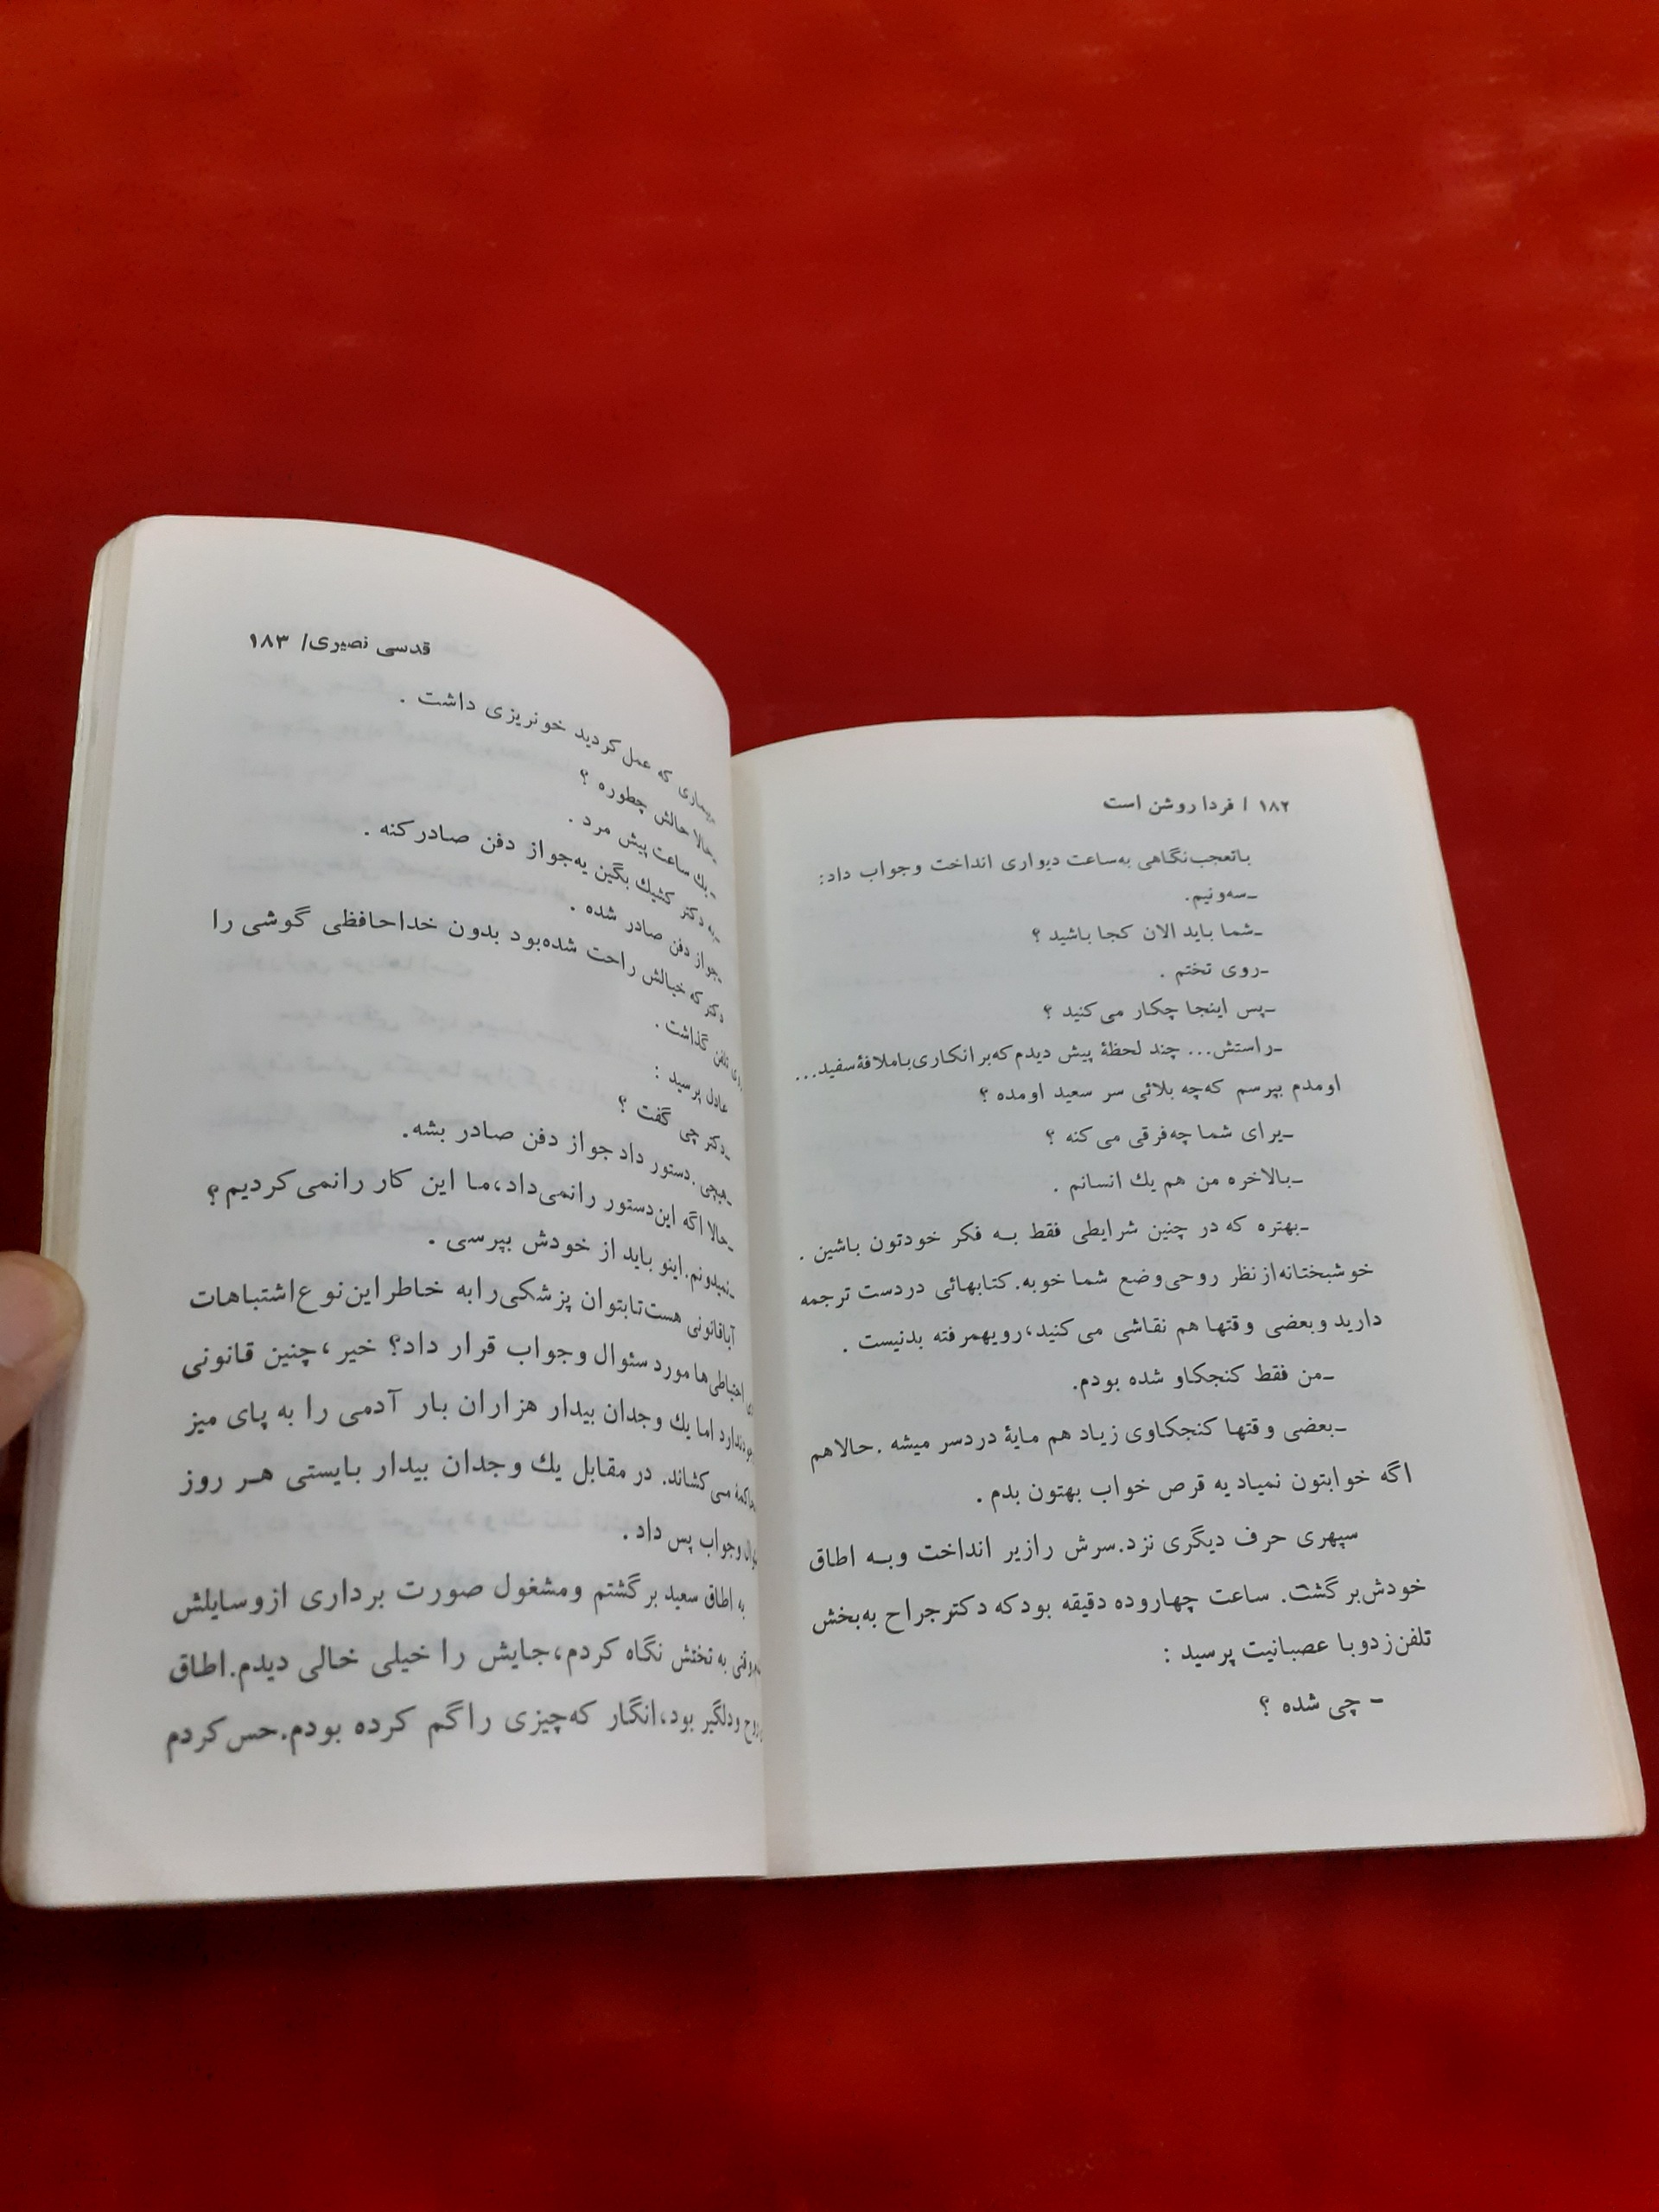 ۱۸۲ / فردا روشن است
باتعجب‌نگاهی به‌ساعت دیواری انداخت وجواب داد:
ـسه‌ونیم.
ـشما باید الان کجا باشید ؟
ـروی تختم .
ـپس اینجا چکار می‌کنید ؟
ـراستش... چند لحظهٔ پیش دیدم که‌برانکاری‌باملافهٔ‌سفید...
اومدم بپرسم که‌چه بلائی سر سعید اومده ؟
ـبرای شما چه‌فرقی می‌کنه ؟
ـبالاخره من هم یك انسانم .
ـبهتره که در چنین شرایطی فقط بـه فکر خودتون باشین .
خوشبختانه‌ازنظر روحی‌وضع شماخوبه.کتابهائی دردست ترجمه
دارید وبعضی وقتها هم نقاشی می‌کنید،رویهمرفته بدنیست .
ـمن فقط کنجکاو شده بودم.
ـبعضی وقتها کنجکاوی زیاد هم مایهٔ دردسر میشه .حالاهم
اگه خوابتون نمیاد یه قرص خواب بهتون بدم .
سپهری حرف دیگری نزد.سرش رازیر انداخت وبـه اطاق
خودش‌برگشت. ساعت چهاروده دقیقه بودکه دکترجراح به‌بخش
تلفن‌زدوبا عصبانیت پرسید :
- چی شده ؟
قدسی نصیری/ ۱۸۳
بیماری که عمل‌کردید خونریزی داشت .
ـحالا حالش چطوره ؟
ـیك ساعت پیش مرد .
ـبه دکتر کشیك بگین یه‌جواز دفن صادرکنه .
ـجواز دفن صادر شده .
دکتر که خیالش راحت شده‌بود بدون خداحافظی گوشی را
روی تلفن گذاشت .
عادل پرسید :
ـدکتر چی گفت ؟
ـهیچی .دستور داد جواز دفن صادر بشه.
ـحالا اگه این‌دستور رانمی‌داد،ما این کار رانمی‌کردیم؟
ـنمیدونم.اینو باید از خودش بپرسی .
آیاقانونی هست‌تابتوان پزشکی‌رابه خاطراین‌نوع‌اشتباهات
احتیاطی‌ها مورد سئوال وجواب قرار داد؟ خیر،چنین قانونی
اما یك وجدان بیدار هزاران بار آدمی را به پای میز
محاکمهٔ می‌کشاند. در مقابل یك وجدان بیدار بایستی هـر روز
سئوال وجواب پس داد .
به اطاق سعید برگشتم ومشغول صورت برداری ازوسایلش
وقتی به تختش نگاه کردم،جایش را خیلی خالی دیدم.اطاق
ودلگیر بود،انگار که‌چیزی راگم کرده بودم.حس‌کردم